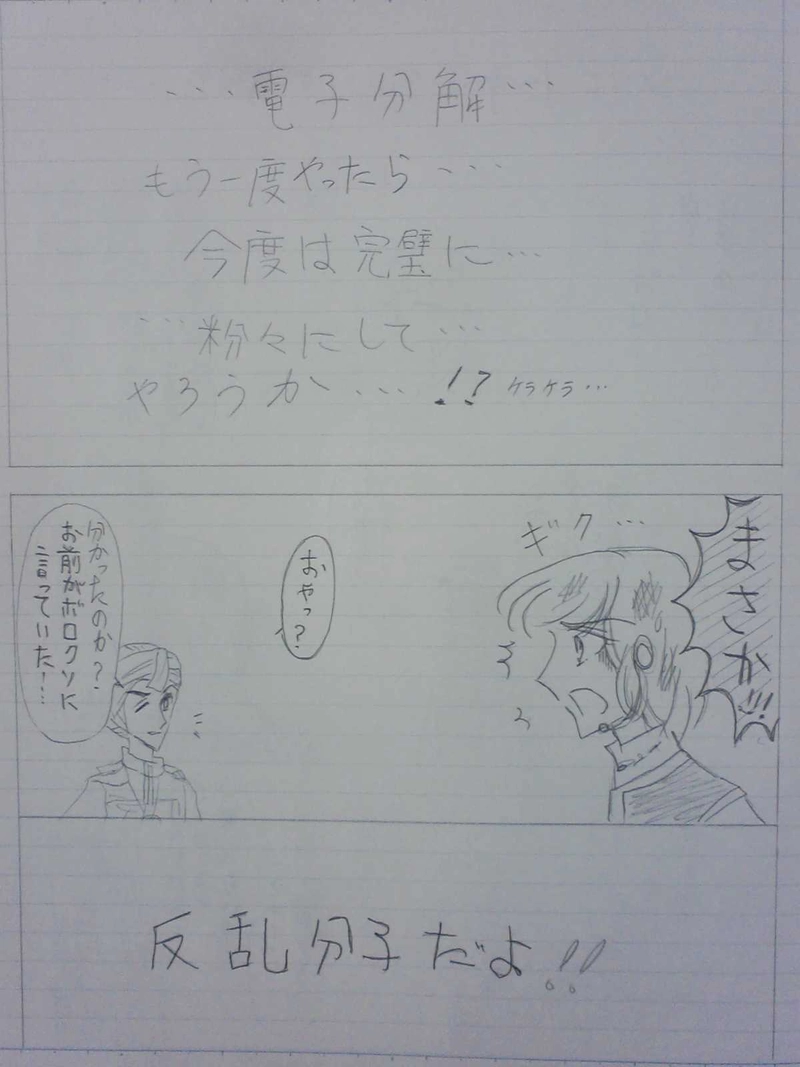 …電子分解…
もう一度やったら…
今度は完璧に…
…粉々にして…
やろうか…!?ケラケラ…
まさか!!!
ギク…
おやっ?
分かったのか?
お前がボロクソに
言っていた!…
反乱分子だよ!!